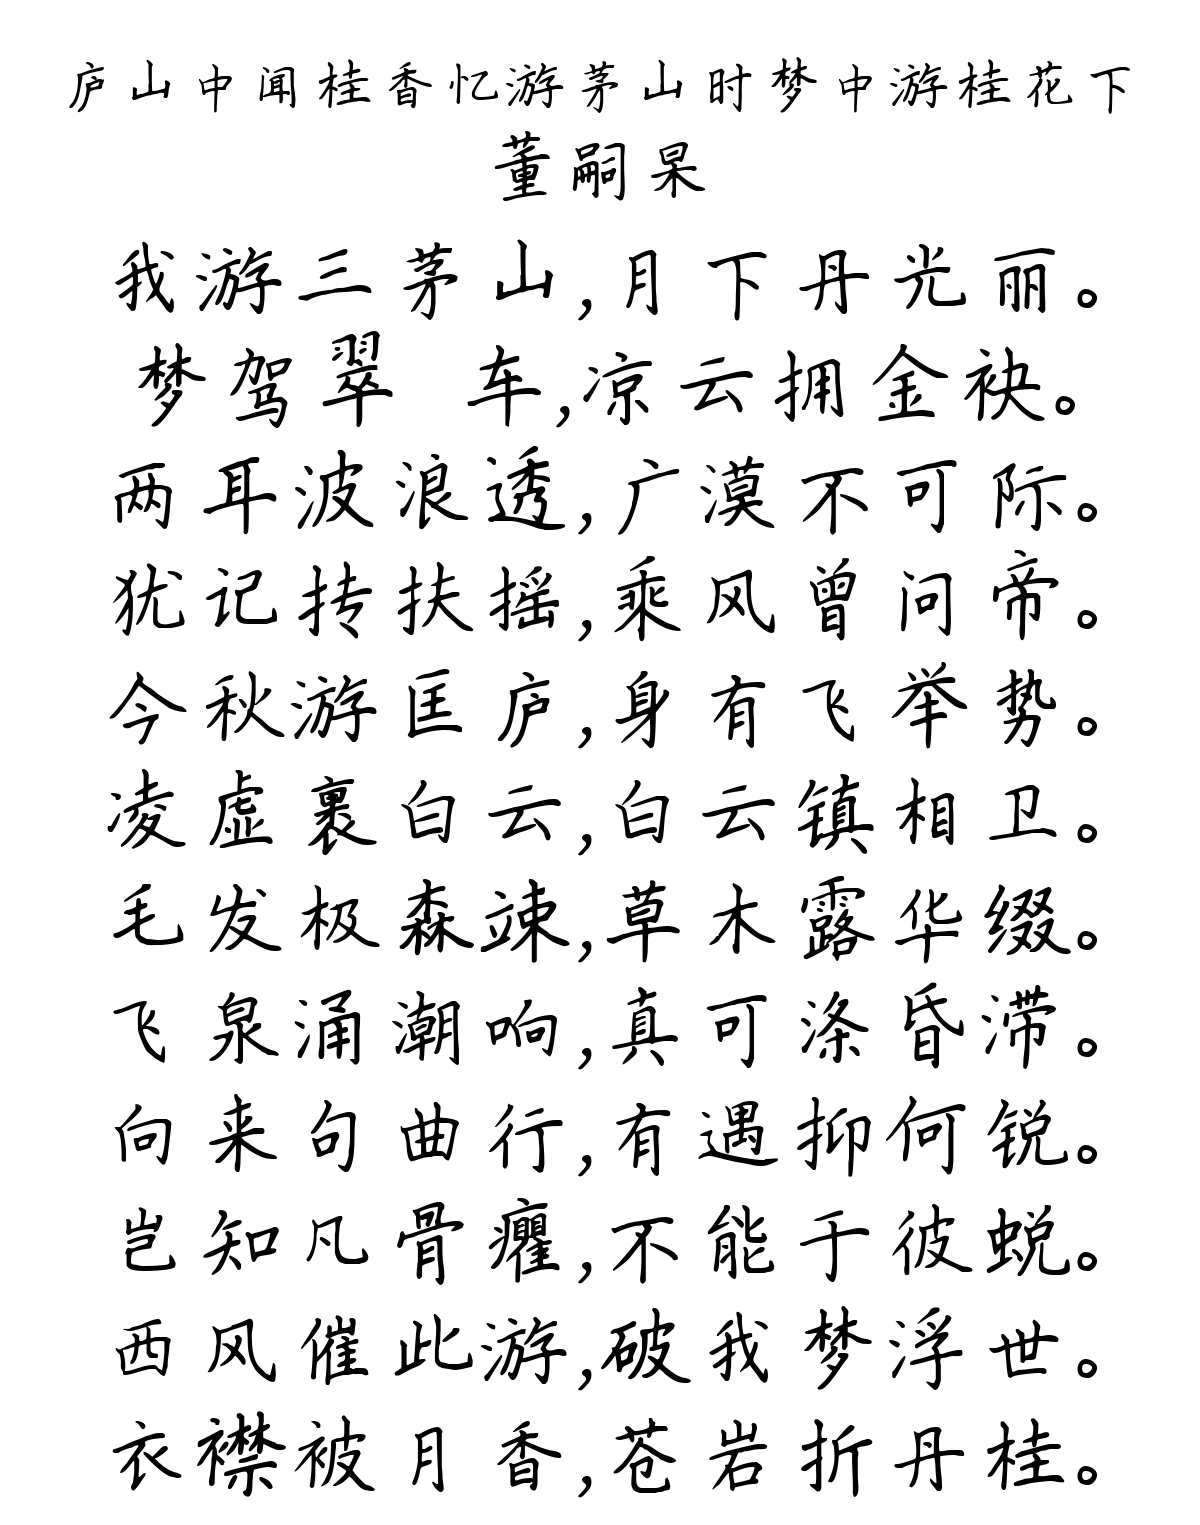 庐山中闻桂香忆游茅山时梦中游桂花下
董嗣杲
我游三茅山,月下丹光丽。
梦驾翠 车,凉云拥金袂。
两耳波浪透,广漠不可际。
犹记抟扶摇,乘风曾问帝。
今秋游匡庐,身有飞举势。
凌虚裹白云,白云镇相卫。
毛发极森竦,草木露华缀。
飞泉涌潮响,真可涤昏滞。
向来句曲行,有遇抑何锐。
岂知凡骨癯,不能于彼蜕。
西风催此游,破我梦浮世。
衣襟被月香,苍岩折丹桂。